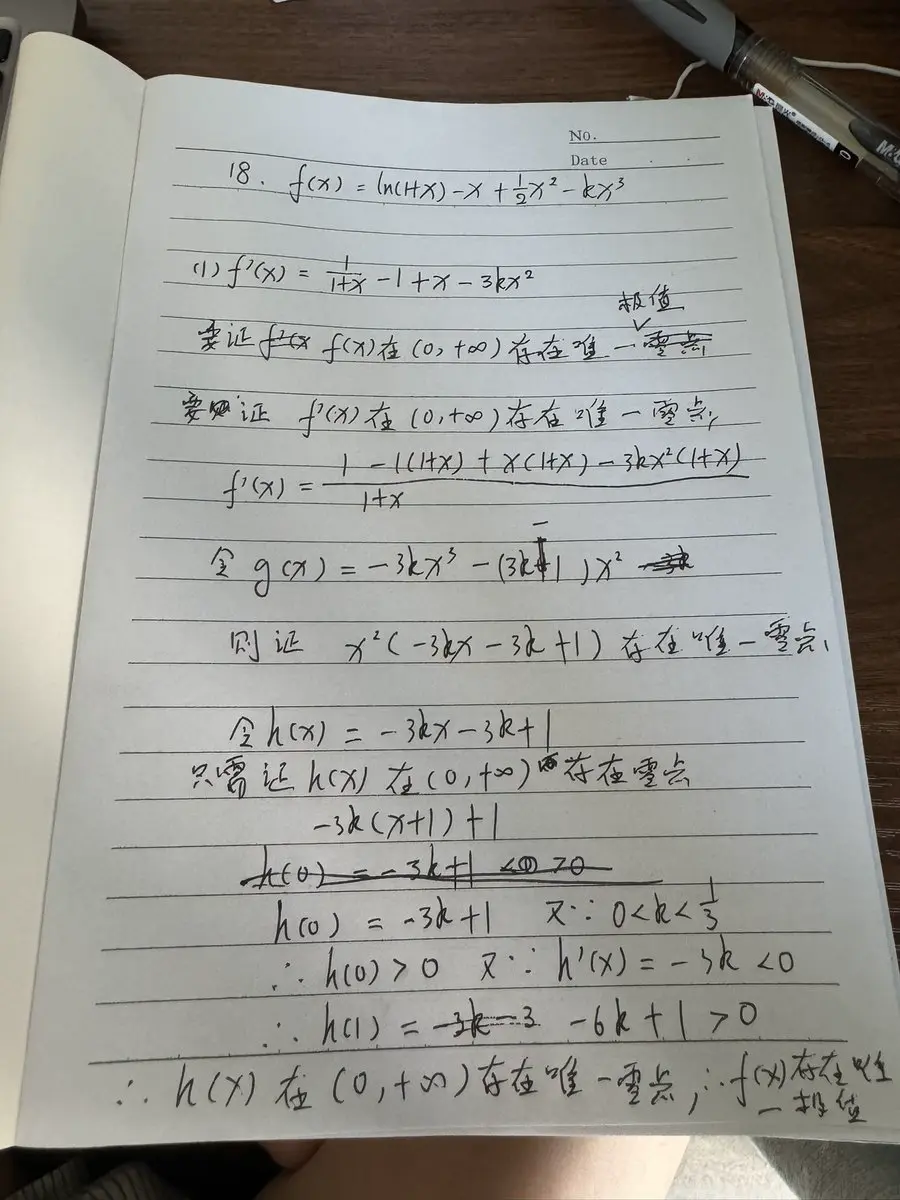 No.
Date
18. f(x) = ln(1+x) - x + 1/2 x² - kx³
(1) f'(x) = 1/(1+x) - 1 + x - 3kx²
极值
要证 f(x)在(0,+∞)存在唯一零点
要 证 f'(x)在(0,+∞)存在唯一零点,
f'(x) = (1 - 1(1+x) + x(1+x) - 3kx²(1+x))/(1+x)
令 g(x) = -3kx³ - (3k-1)x²
则证 x²(-3kx - 3k + 1) 存在唯一零点,
令 h(x) = -3kx - 3k + 1
只需证 h(x) 在(0,+∞) 存在零点
-3k(x+1) + 1
h(0) = -3k+1 <0 >0
h(0) = -3k+1 又∵ 0<k<1/3
∴ h(0) > 0 又∵ h'(x) = -3k < 0
∴ h(1) = -3k-3 -6k+1 > 0
∴ h(x) 在(0,+∞)存在唯一零点, ∴ f(x)存在唯
一极值